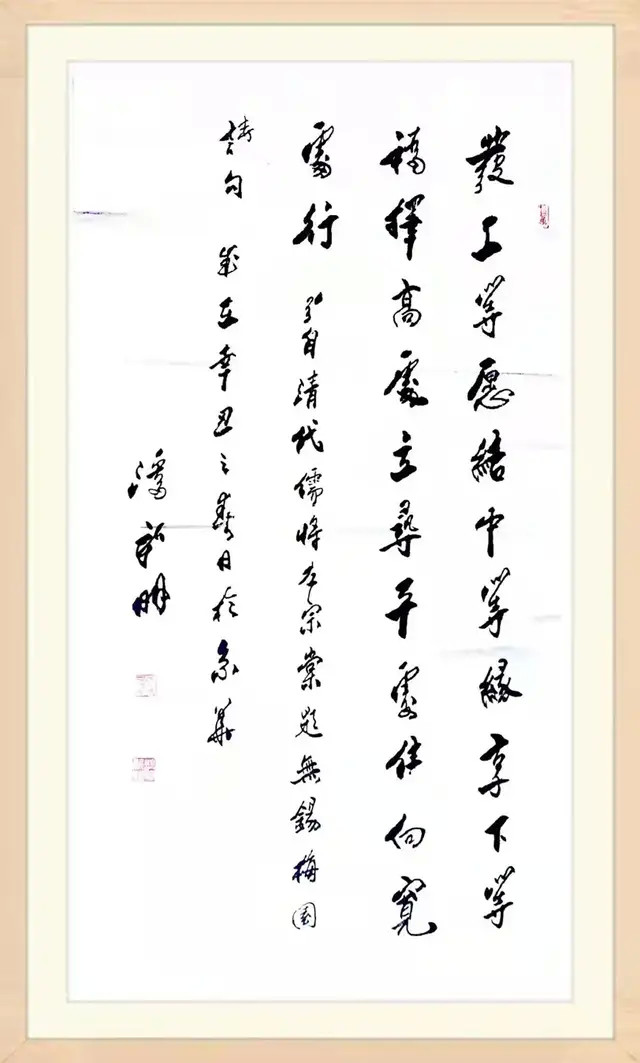 發上等愿結中等緣享下等
福擇高處立尋平處住向寬
處行 引自清代儒將左宗棠題無錫梅園
詩句 歲在辛丑之春日於京華
潘 明